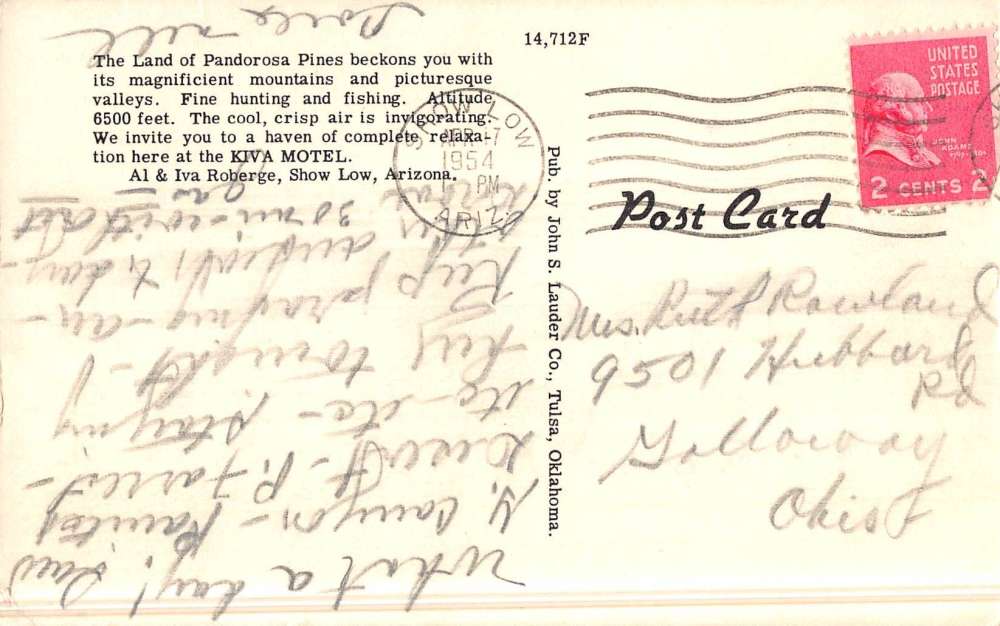 14,712F
The Land of Pandorosa Pines beckons you with
its magnificient mountains and picturesque
valleys. Fine hunting and fishing. Altitude
6500 feet. The cool, crisp air is invigorating.
We invite you to a haven of complete relaxa-
tion here at the KIVA MOTEL.
Al & Iva Roberge, Show Low, Arizona.
SHOW LOW
APR 17
1954
PM
ARIZ
UNITED
STATES
POSTAGE
JOHN
ADAMS
2 CENTS 2
Post Card
Pub. by John S. Lauder Co., Tulsa, Oklahoma.
Mrs. Ruth Rowland
9501 Hubbard
Rd
Galloway
Ohio
What a day! Saw
G. Canyon - Painted
Desert - P. Forest -
etc - etc - staying
here tonight -
Keep praying - an-